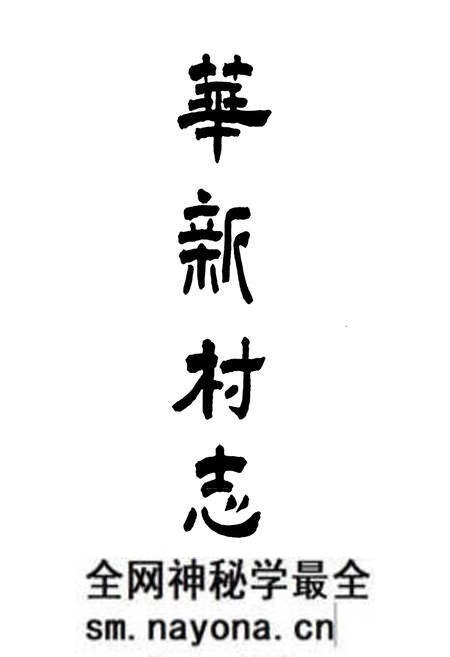 華新村志
全网神秘学最全
sm.nayona.cn